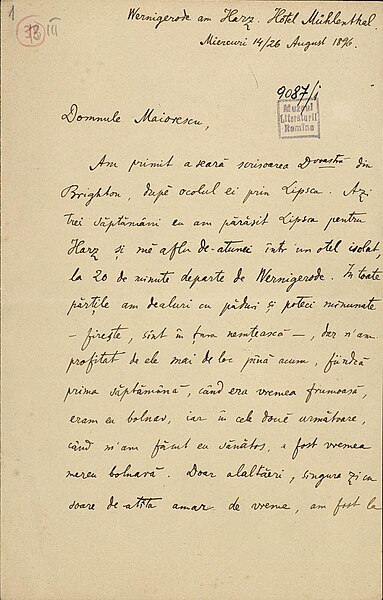 1
33 III
Wernigerode am Harz. Hôtel Mühlenthal.
Miercuri 14/26 August 1896.
9087/1
Muzeul
Literaturii
Romîne
Domnule Maiorescu,
Am primit aseară scrisoarea Dvoastră din
Brighton, după ocolul ei prin Lipsca. Azi
trei săptămâni eu am părăsit Lipsca pentru
Harz și mă aflu de-atunci într'un otel isolat,
la 20 de minute departe de Wernigerode. În toate
părțile am dealuri cu păduri și poteci minunate
– firește, sînt în țara nemțească –, dar n'am
profitat de ele mai de loc pînă acum, fiindcă
prima săptămână, când era vremea frumoasă,
eram eu bolnav, iar în cele două următoare,
când m'am făcut eu sănătos, a fost vremea
mereu bolnavă. Doar alaltăeri, singura zi cu
soare de-atîta amar de vreme, am fost la